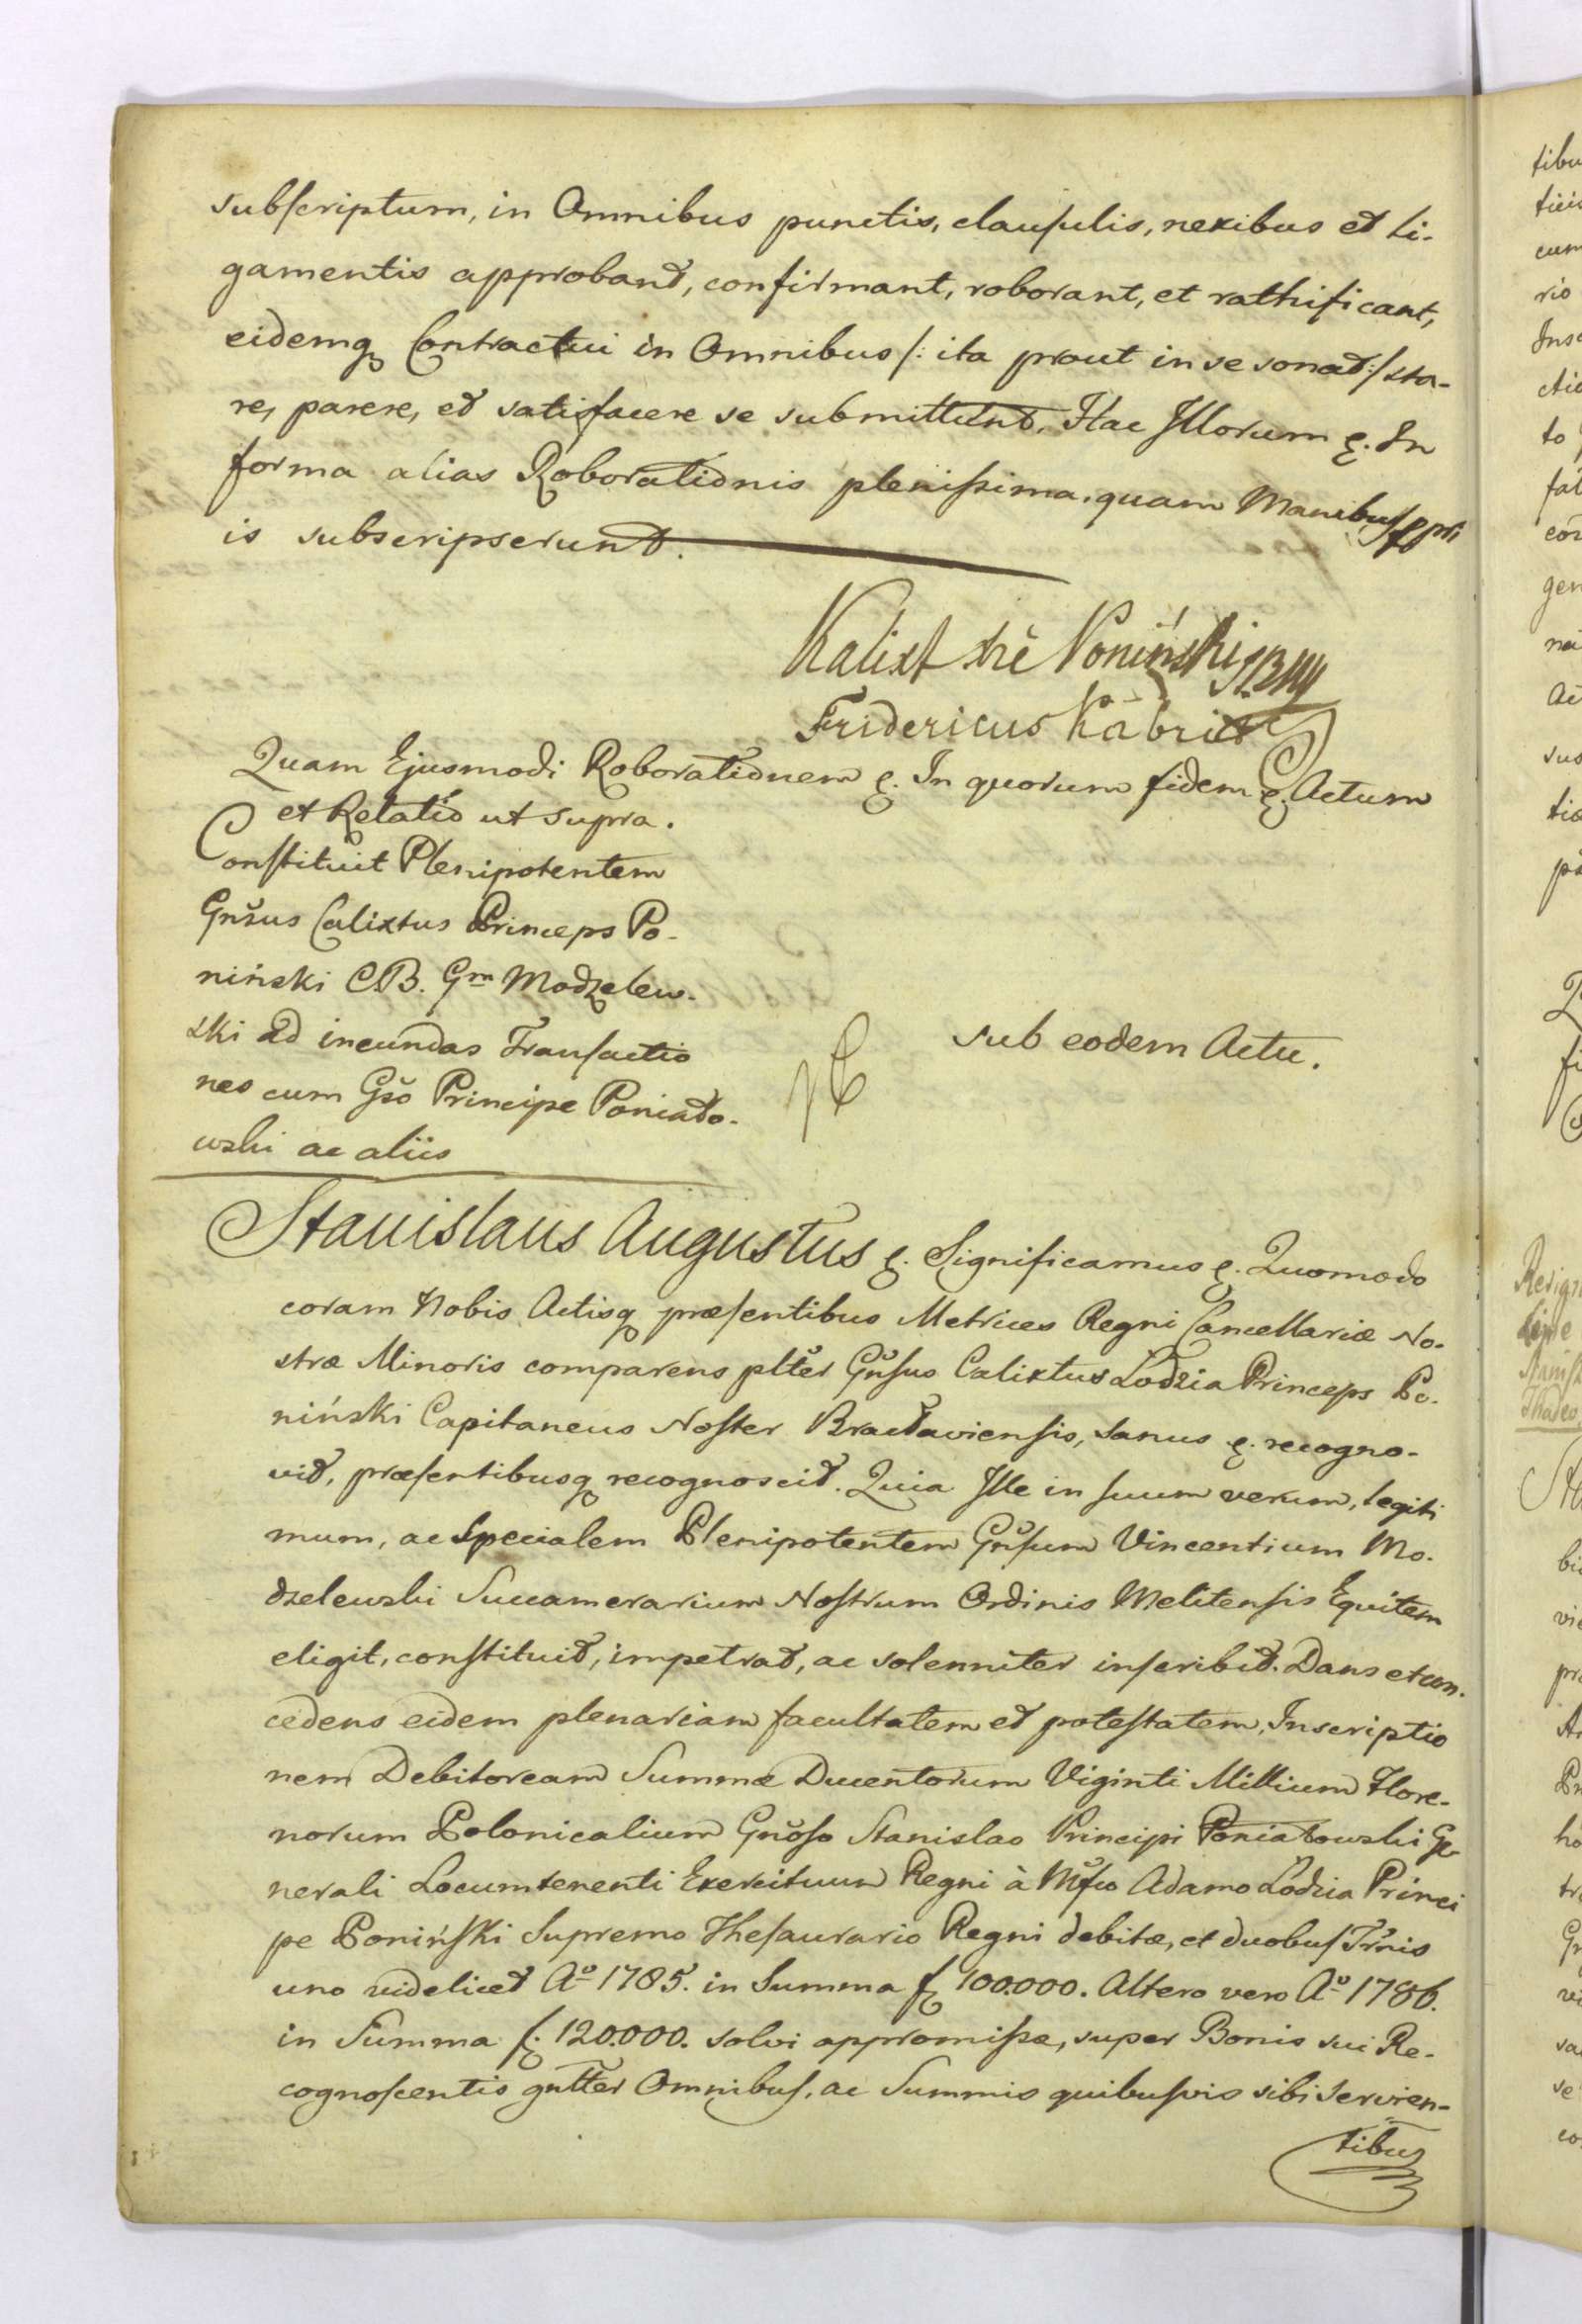 subscriptum, in Omnibus punctis, clausulis, nexibus et Li-
gamentis approbant, confirmant, roborant, et rathificant,
eidemq Contractui in Omnibus /: ita prout in se sonat :/ sta-
re, parere, et satisfacere se submittunt. Hac Illorum &. In
forma alias Roborationis plenissima. quam Manibus ppri
is subscripserunt.
Kalixt Poniński
Fridericus Kabrit
Quam Ejusmodi Roborationem &. In quorum fidem &. Actum
et Relatio ut supra.
Constituit Plenipotentem
Gnsus Calixtus Princeps Po-
niński C.B. Gm Modzelew-
ski ad ineundas Transactio
nes cum Gso Principe Poniato-
wski ac aliis
sub eodem Actu.
Stanislaus Augustus &. Significamus &. Quomodo
coram Nobis Actisq præsentibus Metrices Regni Cancellariæ No-
stræ Minoris comparens plter Gnsus Calixtus Lodzia Princeps Po-
niński Capitaneus Noster Bractaviensis, sanus &. recogno-
vit, præsentibusq recognoscit. Quia Ille in suum verum, legiti
mum, ac Specialem Plenipotentem Gnsum Vincentium Mo-
dzelewski Succamerarium Nostrum Ordinis Melitensis Equitem
eligit, constituit, impetrat, ac solenniter inscribit. Dans et con-
cedens eidem plenariam facultatem et potestatem, Inscriptio
nem Debitoream Summæ Ducentorum Viginti Millium Flore-
norum Polonicalium Gnoso Stanislao Principi Poniatowski Ge-
nerali Locumtenenti Exercituum Regni à Mfco Adamo Lodzia Princi
pe Poniński Supremo Thesaurario Regni debitæ, et duobus Trnis
uno videlicet Aº 1785. in Summa f 100.000. Altero vero Aº 1786.
in Summa f. 120.000. solvi appromissæ, super Bonis sui Re-
cognoscentis gnlter Omnibus, ac Summis quibusvis sibi servien-
tibus